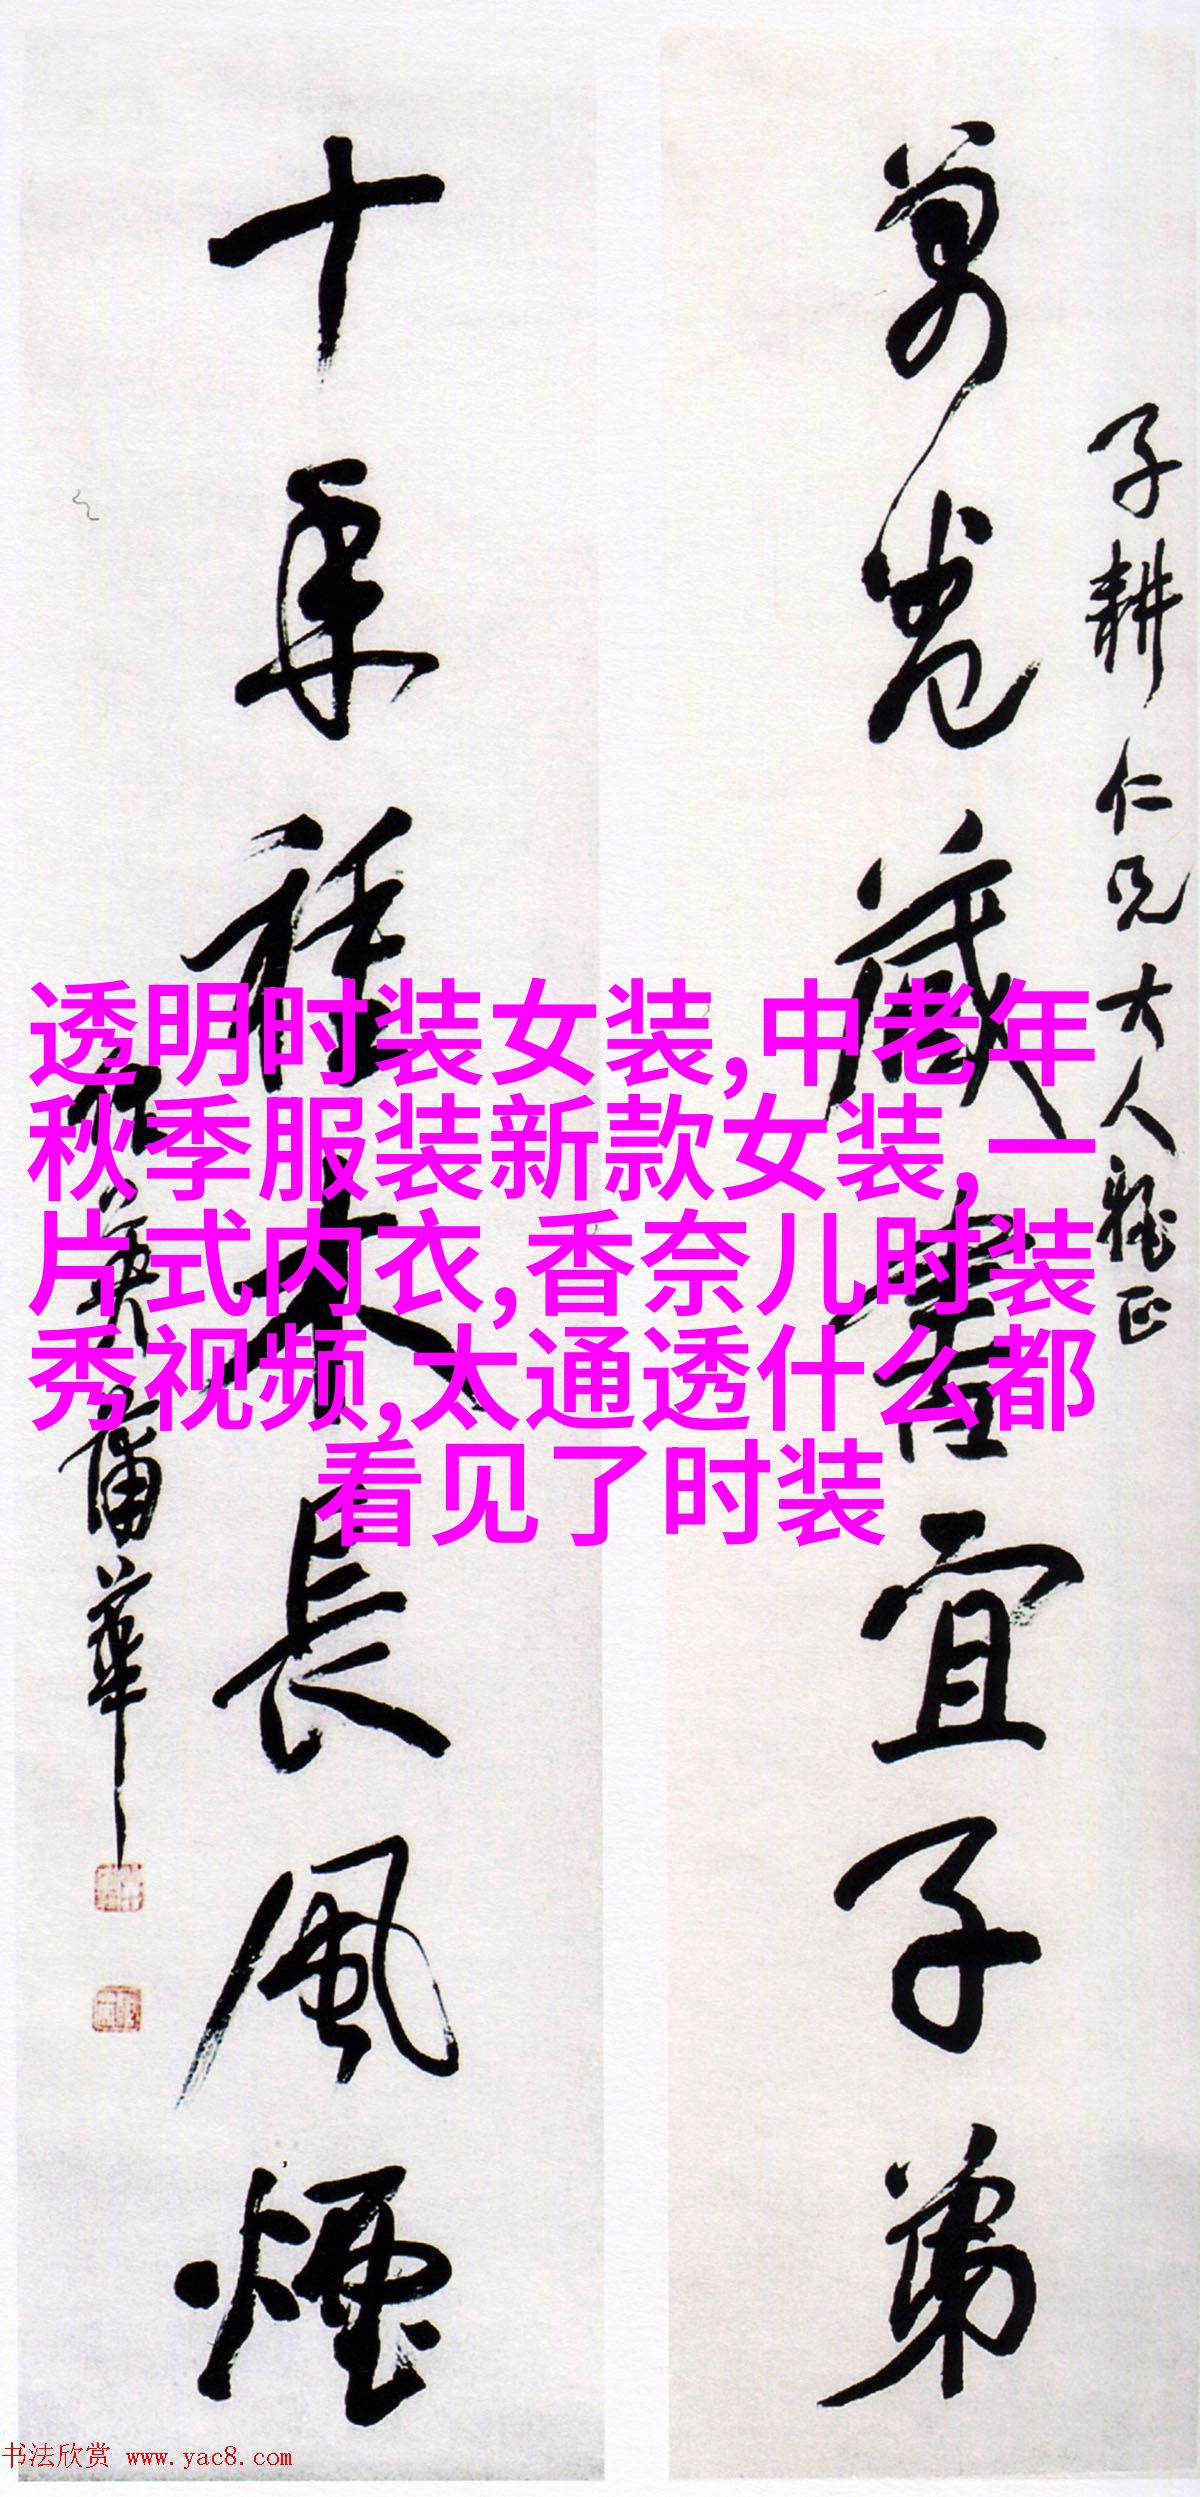 子耕仁兄大人雅正
萬卷藏書宜子弟
十年種木長風煙
作英蒲華
透明时装女装,中老年
秋季服装新款女装,一
片式内衣,香奈儿时装
秀视频,太通透什么都
看见了时装
书法欣赏 www.yac8.com